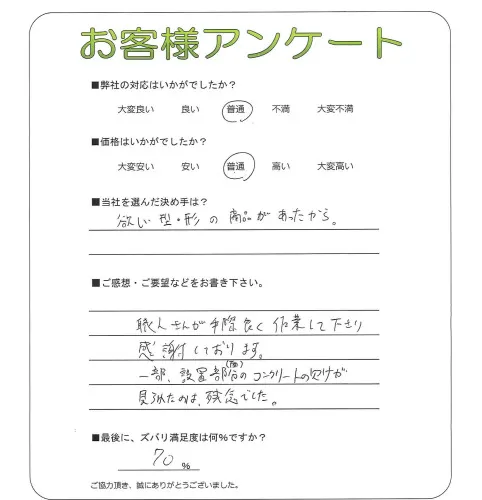 お客様アンケート
■弊社の対応はいかがでしたか？
大変良い　良い　普通　不満　大変不満
■価格はいかがでしたか？
大変安い　安い　普通　高い　大変高い
■当社を選んだ決め手は？
欲しい型・形の商品があったから。
■ご感想・ご要望などをお書き下さい。
職人さんが手際良く作業して下さり
感謝しております。
一部、設置部分のコンクリートの欠けが
見られたのは、残念でした。
■最後に、ズバリ満足度は何%ですか？
70 %
ご協力頂き、誠にありがとうございました。